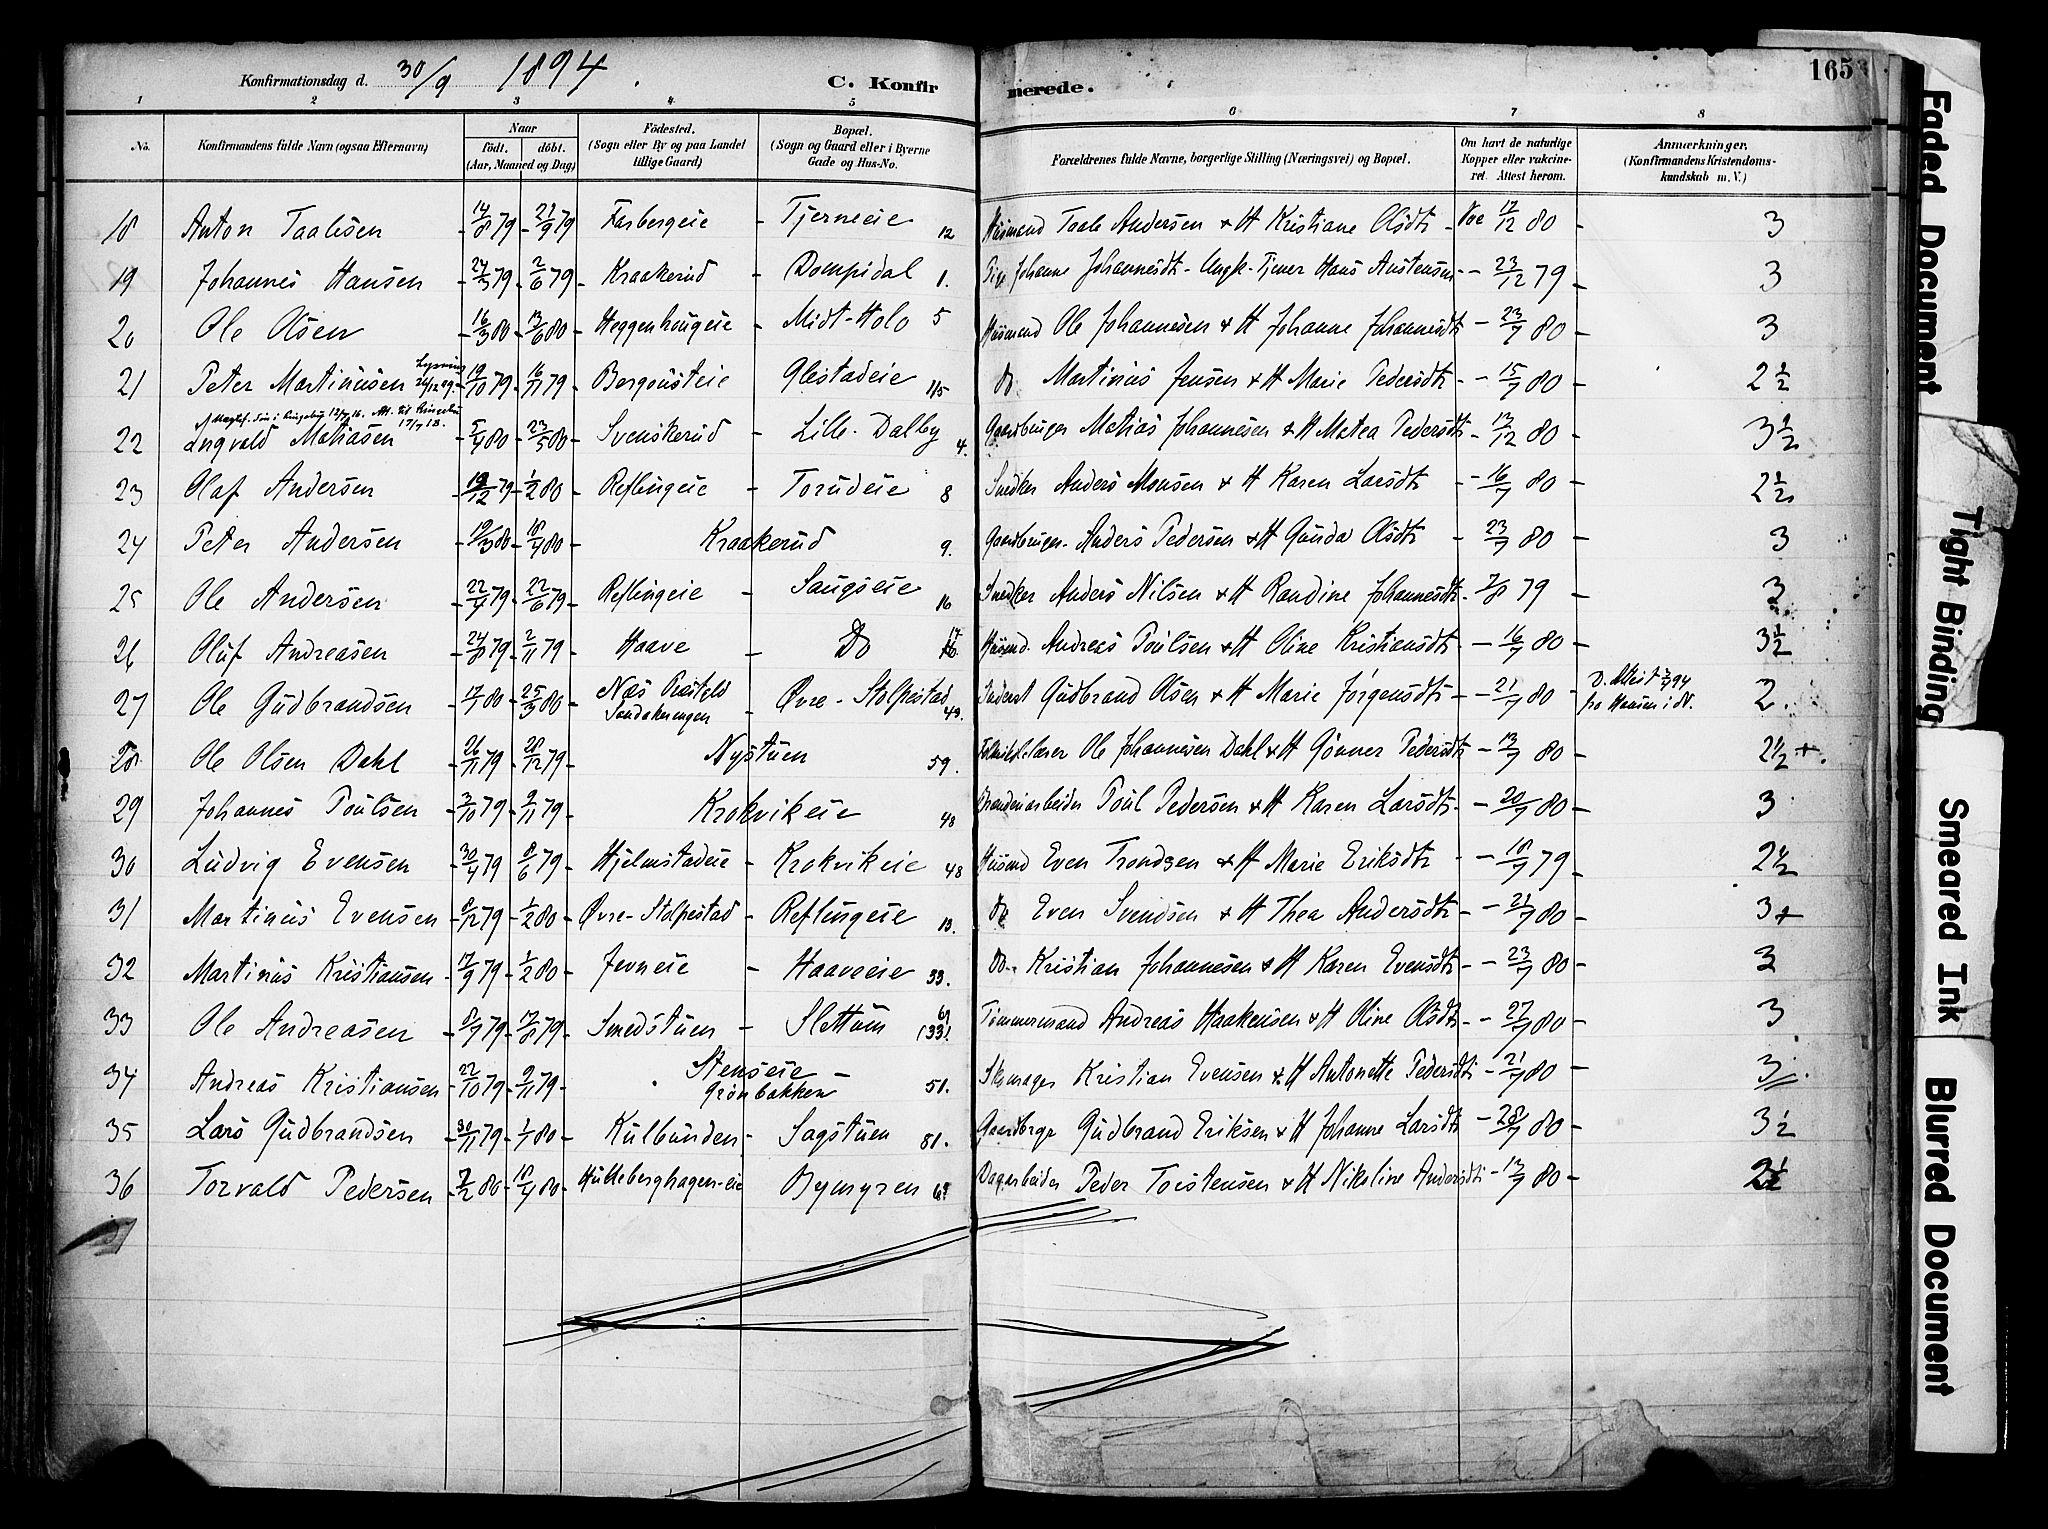 Konfirmationsdag d. 30/9 1894. C. Konfirmerede. 165
1 2 3 4 5 6 7 8
No. Konfirmandens fulde Navn (ogsaa Efternavn) Naar födt. döbt. (Aar, Maaned og Dag) Födested. (Sogn eller By og paa Landet tillige Gaard) Bopæl. (Sogn og Gaard eller i Byerne Gade og Hus-No. Forældrenes fulde Navne, borgerlige Stilling (Næringsvei) og Bopæl. Om havt de naturlige Kopper eller vakcineret. Attest herom. Anmærkninger. (Konfirmandens Kristendomskundskab m. V.)
18 Anton Taalesen 14/8 79 21/9 79 Farbergeie - Tjerneeie 12 Husmand Taale Andersen & H Kristiane Olsdtr - Vac 17/12 80 - 3
19 Johannes Hansen 24/3 79 2/6 79 Kraakerud - Dompidal 1. Pige Johanne Johannesdtr - Ungk. Tjener Hans Austensen - 23/12 79 - 3
20 Ole Olsen 16/3 80 13/6 80 Heggenhougeie - Midt-Holo 5 Husmand Ole Johannesen & H Johanne Johannesdtr - 23/7 80 - 3
21 Peter Martinusen 19/10 79 16/11 79 Bergousteie Glestadeie 115 Do Martinus Jensen & H Marie Pedersdtr - 15/7 80 - 2 1/2
22 Ingvald Matiasen 5/4 80 23/5 80 Svenskerud - Lille-Dalby 4. Gaardbruger Matias Johannesen & H Matea Pedersdtr - 13/12 80 - 3 1/2
23 Olaf Andersen 19/12 79 1/2 80 Reflingeie - Torudeie 8 Snedker Anders Monsen & H Karen Larsdtr - 16/7 80 - 2 1/2
24 Peter Andersen 10/3 80 18/4 80 Kraakerud 9. Gaardbruger Anders Pedersen & H Gunda Olsdtr - 23/7 80 - 3
25 Ole Andersen 22/4 79 22/6 79 Reflingeie - Saugseie 16 Snedker Anders Nilsen & H Randine Johannesdtr - 7/8 79 - 3
26 Oluf Andreasen 24/8 79 2/11 79 Haave - Do 17 Husmd. Andreas Poulsen & H Oline Kristiansdtr - 16/7 80 - 3 1/2
27 Ole Gudbrandsen 17/1 80 25/3 80 Næs Præsteld - Øvre-Stolpestad 49. Inderst Gudbrand Olsen & H Marie Jörgensdtr - 21/7 80 - D. Attest 94 fra Hansen i N. 2.
28 Ole Olsen Dahl 26/11 79 28/12 79 Nystuen 59. Folkeskolelærer Ole Johannesen Dahl & H Gönner Pedersdtr - 13/7 80 - 2 1/2 +.
29 Johannes Poulsen 3/10 79 9/11 79 Krokvikeie 48 Brænderiarbeider Poul Pedersen & H Karen Larsdtr - 20/7 80 - 3
30 Ludvig Evensen 30/4 79 8/6 79 Hjelmstadeie - Krokvikeie 48 Husmd Even Trondsen & H Marie Eriksdtr - 18/7 79 - 2 1/2
31 Martinus Evensen 8/12 79 1/2 80 Øvre-Stolpestad - Reflingeie 13. Do Even Svendsen & H Thea Andersdtr - 21/7 80 - 3+
32 Martinus Kristiansen 17/9 79 1/2 80 Jevneeie - Haaveeie 33. Do. Kristian Johannesen & H Karen Evensdtr - 23/7 80 - 3
33 Ole Andreasen 8/7 79 17/8 79 Smedstuen - Slettum 61 (33) Tömmermand Andreas Haakensen & H Oline Olsdtr - 27/7 80 - 3
34 Andreas Kristiansen 22/10 79 9/11 79 Stenseie - Grönbakken 51. Skomager Kristian Evensen & H Antonette Pedersdtr - 21/7 80 - 3
35 Lars Gudbrandsen 30/11 79 1/1 80 Kulbunden - Sagstuen 81. Gaardbrgr Gudbrand Eriksen & H Johanne Larsdtr - 28/7 80 - 3 1/2
36 Torvald Pedersen 7/2 80 18/4 80 Hulleberghagen-eie Bymyren 69 Dagarbeider Peder Torstensen & H Nikoline Andersdtr - 13/7 80 - 2 1/2
Faded Document
Tight Binding
Smeared Ink
Blurred Document